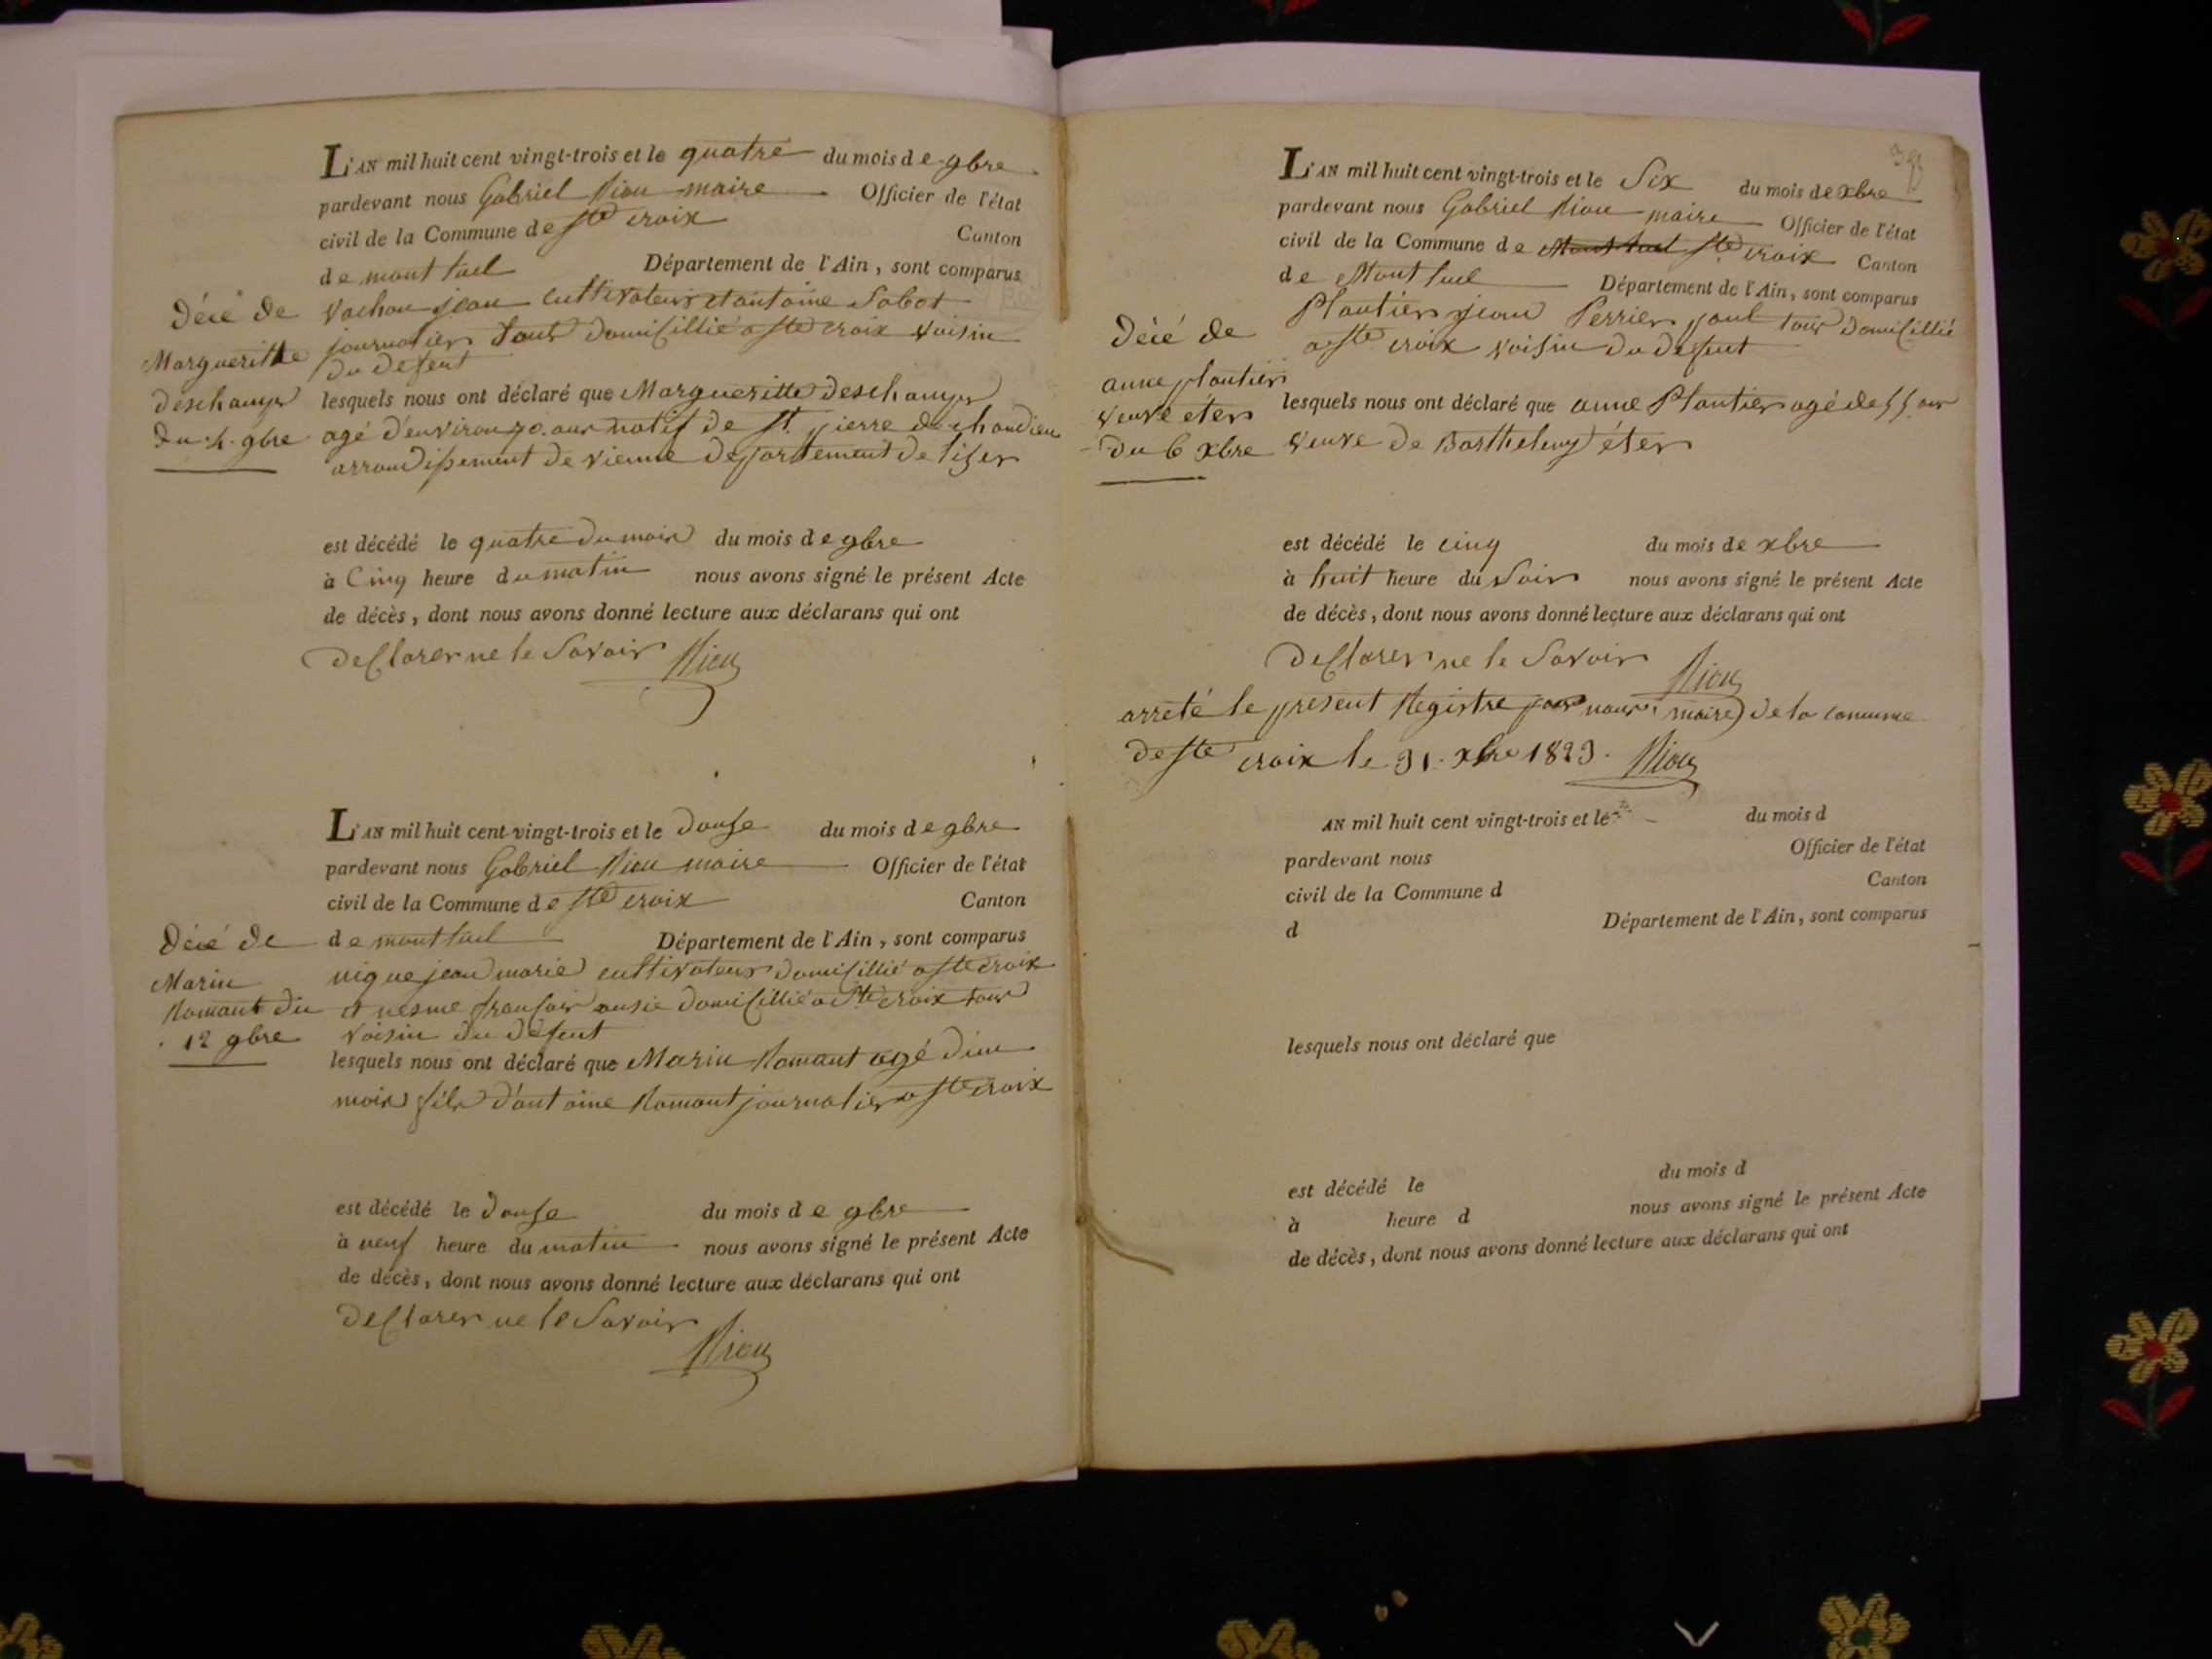 L'AN mil huit cent vingt-trois et le quatre du mois de 9bre
pardevant nous Gabriel Riou maire Officier de l'état
civil de la Commune de Ste croix Canton
de mont luel Département de l'Ain, sont comparus
Vachon jean cultivateur et antoine Sabot
journalier tout domicillié a Ste croix voisin
du defent
Décé de
Margueritte
deschamps
du 4 9bre
lesquels nous ont déclaré que Margueritte deschamps
agé d'environ 70 ans natif de St. pierre de chandieu
arrondissement de vienne departement de liser
est décédé le quatre du mois du mois de 9bre
à Cinq heure du matin nous avons signé le présent Acte
de décès, dont nous avons donné lecture aux déclarans qui ont
declarer ne le Savoir Riou
L'AN mil huit cent vingt-trois et le douse du mois de 9bre
pardevant nous Gabriel Riou maire Officier de l'état
civil de la Commune de Ste croix Canton
de mont luel Département de l'Ain, sont comparus
nique jean marie cultivateur domicillié a Ste croix
et nesme fransois ausie domicillié a Ste croix tous
voisin du defent
Décé de
Marin
Romant du
12 9bre
lesquels nous ont déclaré que Marin Romant agé d'un
mois fils d'antoine Romant journalier a Ste croix
est décédé le douse du mois de 9bre
à neuf heure du matin nous avons signé le présent Acte
de décès, dont nous avons donné lecture aux déclarans qui ont
declarer ne le Savoir
Riou
L'AN mil huit cent vingt-trois et le Six du mois de xbre
pardevant nous Gabriel Riou maire Officier de l'état
civil de la Commune de Mont luel Ste croix Canton
de Mont luel Département de l'Ain, sont comparus
Plantier jean Perrier paul tous domicillié
a Ste croix voisin du defent
Décé de
anne plantier
veuve éter
du 6 xbre
lesquels nous ont déclaré que anne Plantier agé de 55 ans
veuve de Barthelemy éter
est décédé le cinq du mois de xbre
à huit heure du Soir nous avons signé le présent Acte
de décès, dont nous avons donné lecture aux déclarans qui ont
declarer ne le Savoir Riou
arreté le present Registre par nous maire de la comune
de Ste croix le 31 xbre 1823. Riou
AN mil huit cent vingt-trois et le du mois d
pardevant nous Officier de l'état
civil de la Commune d Canton
d Département de l'Ain, sont comparus
lesquels nous ont déclaré que
est décédé le du mois d
à heure d nous avons signé le présent Acte
de décès, dont nous avons donné lecture aux déclarans qui ont